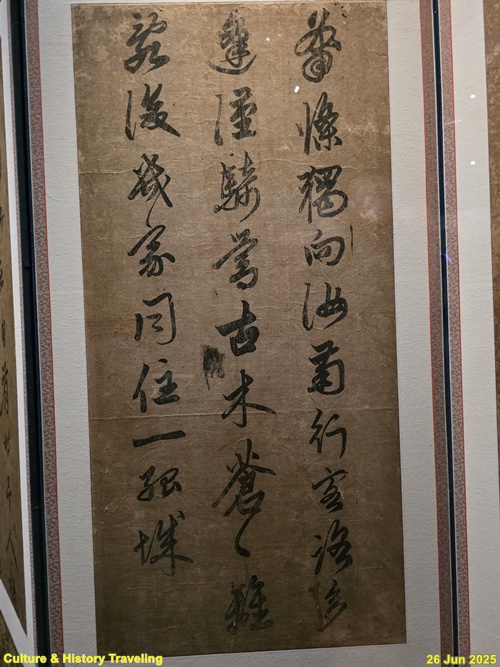 蕭條獨向汝南行客路多
逢漢騎營古木蒼〻離
亂後幾家同住一孤城
Culture & History Traveling
26 Jun 2025